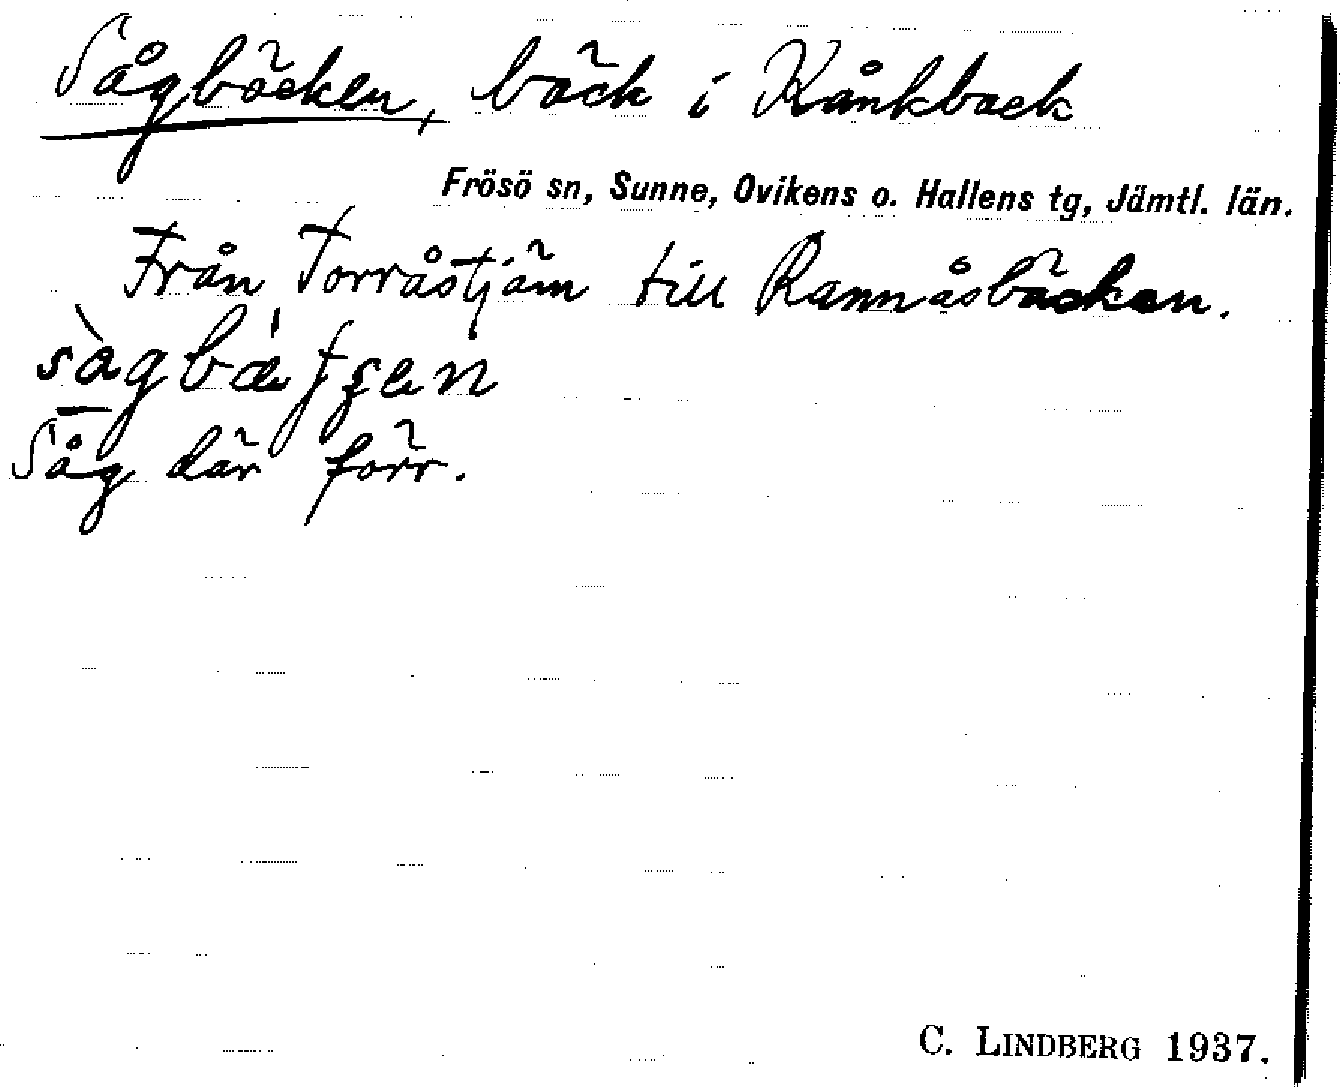 Sågbäcken, bäck i Kånkback
Frösö sn, Sunne, Ovikens o. Hallens tg, Jämtl. län.
Från Torråstjärn till Rannåsbäcken.
Såg där förr.
C. LINDBERG 1937.